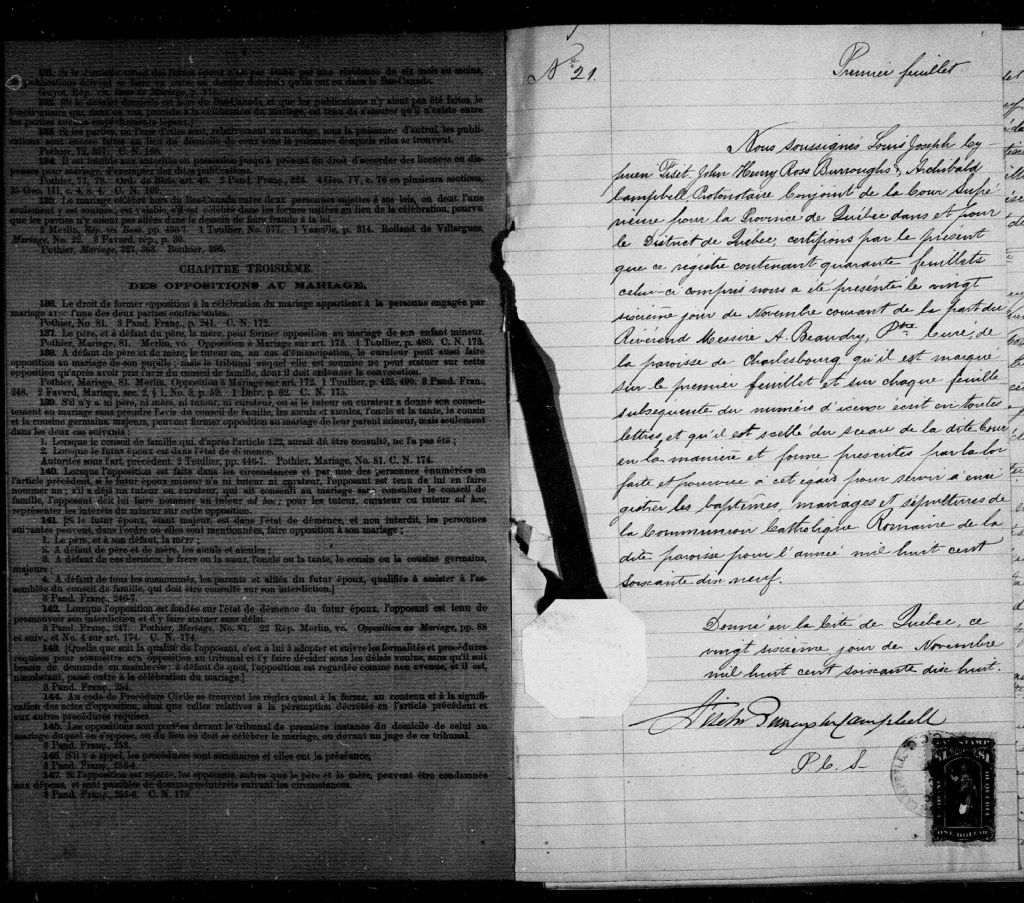 — 4 —
131. Si le domicile actuel des futurs époux n'a pas été établi par une résidence de six mois au moins,
Guyot, Rép. vo. Mariage, p. 174.
132. Si le dernier domicile est hors du Bas-Canada et que les publications n'y aient pas été faites, le
fonctionnaire qui, dans ce cas, procède à la célébration du mariage, est tenu de s'assurer qu'il n'existe entre
les parties aucun empêchement légaux.]
133. Si les parties, ou l'une d'elles, sont, relativement au mariage, sous la puissance d'autrui, les publi-
cations sont encore faites au lieu du domicile de ceux sous la puissance desquels elles se trouvent.
Pothier, 72, 337. C. N. 168.
134. Il est loisible aux autorités en possession jusqu'à présent du droit d'accorder des licences ou dis-
penses pour mariage, d'exempter des dites publications.
Pothier, 77, 78. Ord. de Blois, art. 40. 2 Pand. Franç., 324. 4 Geo. IV, c. 76 en plusieurs sections,
35 Geo. III, c. 4, s. 4. C. N. 169.
135. Le mariage célébré hors du Bas-Canada entre deux personnes sujettes à ses lois, ou dont l'une
seulement y est soumise, est valable, s'il est célébré dans les formes usitées au lieu de la célébration, pourvu
que les parties n'y soient pas allées dans le dessein de faire fraude à la loi.
2 Merlin, Rép. vo. Bans. pp. 436-7. 1 Toullier, No. 577. 1 Vazeille, p. 314. Rolland de Villargues,
Mariage, No. 22. 3 Favard, rép., p. 30.
Pothier, Mariage, 327, 363. Bouhier, 390.
CHAPITRE TROISIÈME.
DES OPPOSITIONS AU MARIAGE.
136. Le droit de former opposition à la célébration du mariage appartient à la personne engagée par
mariage avec l'une des deux parties contractantes.
Pothier, No. 81. 3 Pand. Franç., p. 241. C. N. 172.
137. Le père, et à défaut du père, la mère, peut former opposition au mariage de son enfant mineur.
Pothier, Mariage, 81. Merlin, vo. Opposition à Mariage sur art. 173. 1 Toullier, p. 489. C. N. 173.
138. A défaut de père et de mère, le tuteur ou, au cas d'émancipation, le curateur peut aussi faire
opposition au mariage de son pupille ; mais le tribunal auquel elle est soumise ne peut statuer sur cette
opposition qu'après avoir pris l'avis du conseil de famille, dont il doit ordonner la convocation.
Pothier, Mariage, 81. Merlin, Opposition à Mariage sur art. 172. 1 Toullier, p. 425, 490. 3 Pand. Fran.,
248. 2 Favard, Mariage, sec. 2, § 1, No. 3, p. 59. 1 Delv. p. 62. C. N. 175.
139. S'il n'y a ni père, ni mère, ni tuteur, ni curateur, ou si le tuteur ou curateur a donné son consen-
tement au mariage sans prendre l'avis du conseil de famille, les aïeuls et aïeules, l'oncle et la tante, le cousin
et la cousine germains, majeurs, peuvent former opposition au mariage de leur parent mineur, mais seulement
dans les deux cas suivants :
1. Lorsque le conseil de famille qui, d'après l'article 122, aurait dû être consulté, ne l'a pas été ;
2. Lorsque le futur époux est dans l'état de démence.
Autorités sous l'art. précédent. 2 Toullier, pp. 446-7. Pothier, Mariage, No. 81. C. N. 174.
140. Lorsque l'opposition est faite dans les circonstances et par une des personnes énumérées en
l'article précédent, si le futur époux mineur n'a ni tuteur ni curateur, l'opposant est tenu de lui en faire
nommer un ; s'il a déjà un tuteur ou curateur, qui ait consenti au mariage sans consulter le conseil de
famille, l'opposant doit lui faire nommer un tuteur ad hoc ; pour les tuteur, curateur ou tuteur ad hoc,
représenter les intérêts du mineur sur cette opposition.
141. [Si le futur époux, étant majeur, est dans l'état de démence, et non interdit, les personnes
suivantes peuvent, dans l'ordre où elles sont mentionnées, faire opposition à son mariage :
1. Le père, et à son défaut, la mère ;
2. A défaut de père et de mère, les aïeuls et aïeules ;
3. A défaut de ces derniers, le frère ou la sœur, l'oncle ou la tante, le cousin ou la cousine germains,
majeurs ;
4. A défaut de tous les susnommés, les parents et alliés du futur époux, qualifiés à assister à l'as-
semblée du conseil de famille, qui doit être consulté sur son interdiction.]
3 Pand. Franç., 246-7.
142. Lorsque l'opposition est fondée sur l'état de démence du futur époux, l'opposant est tenu de
promouvoir son interdiction et d'y faire statuer sans délai.
3 Pand. Franç., 247. Pothier, Mariage, No. 81. 22 Rép. Merlin, vo. Opposition au Mariage, pp. 88
et suiv., et No. 4 sur art. 174. C. N. 174.
143. [Quelle que soit la qualité de l'opposant, c'est à lui à adopter et suivre les formalités et procédures
requises pour soumettre son opposition au tribunal et l'y faire décider sous les délais voulus, sans qu'il soit
besoin de demande en mainlevée ; à défaut de quoi, l'opposition est regardée comme non avenue, et il est,
nonobstant, passé outre à la célébration du mariage.]
3 Pand. Franç., 254.
144. Au code de Procédure Civile se trouvent les règles quant à la forme, au contenu et à la signifi-
cation des actes d'opposition, ainsi que celles relatives à la péremption décrétée en l'article précédent et
aux autres procédures requises.
145. Les oppositions sont portées devant le tribunal de première instance du domicile de celui au
mariage duquel on s'oppose, ou du lieu où doit se célébrer le mariage, ou devant un juge de ce tribunal.
3 Pand. Franç., 253.
146. S'il y a appel, les procédures sont sommaires et elles ont la préséance.
3 Pand. Franç., 253-4.
147. Si l'opposition est rejetée, les opposants, autres que le père et la mère, peuvent être condamnés
aux dépens, et sont passibles de dommages-intérêts suivant les circonstances.
3 Pand. Franç., 255-6. C. N. 179.
No. 21.
Premier feuillet
Nous soussignés Louis Joseph Cy-
prien Fiset, John Henry Ross Burroughs & Archibald
Campbell Protonotaire Conjoint de la Cour Supé-
rieure pour la Province de Québec dans et pour
le District de Québec, certifions par le présent
que ce régistre contenant quarante feuillets
celui-ci compris nous a été présenté le vingt
sixieme jour de Novembre courant de la part du
Révérend Messire A. Beaudry, Ptre Curé, de
la paroisse de Charlesbourg qu'il est marqué
sur le premier feuillet et sur chaque feuille
subséquente du numéro d'icence écrit en toutes
lettres, et qu'il est scellé du sceau de la dite Cour
en la manière et forme prescrites par la loi
faite et pourvue à cet egard pour servir à enré
gistrer les baptêmes, mariages et sépultures de
la Communion Catholique Romaine de la
dite paroisse pour l'année mil huit cent
soixante dix neuf.
Donné en la Cité de Québec, ce
vingt sixieme jour de Novembre
mil huit cent soixante dix huit.
Fiset Burroughs Campbell
P. C. S.
STAMP
ONE DOLLAR